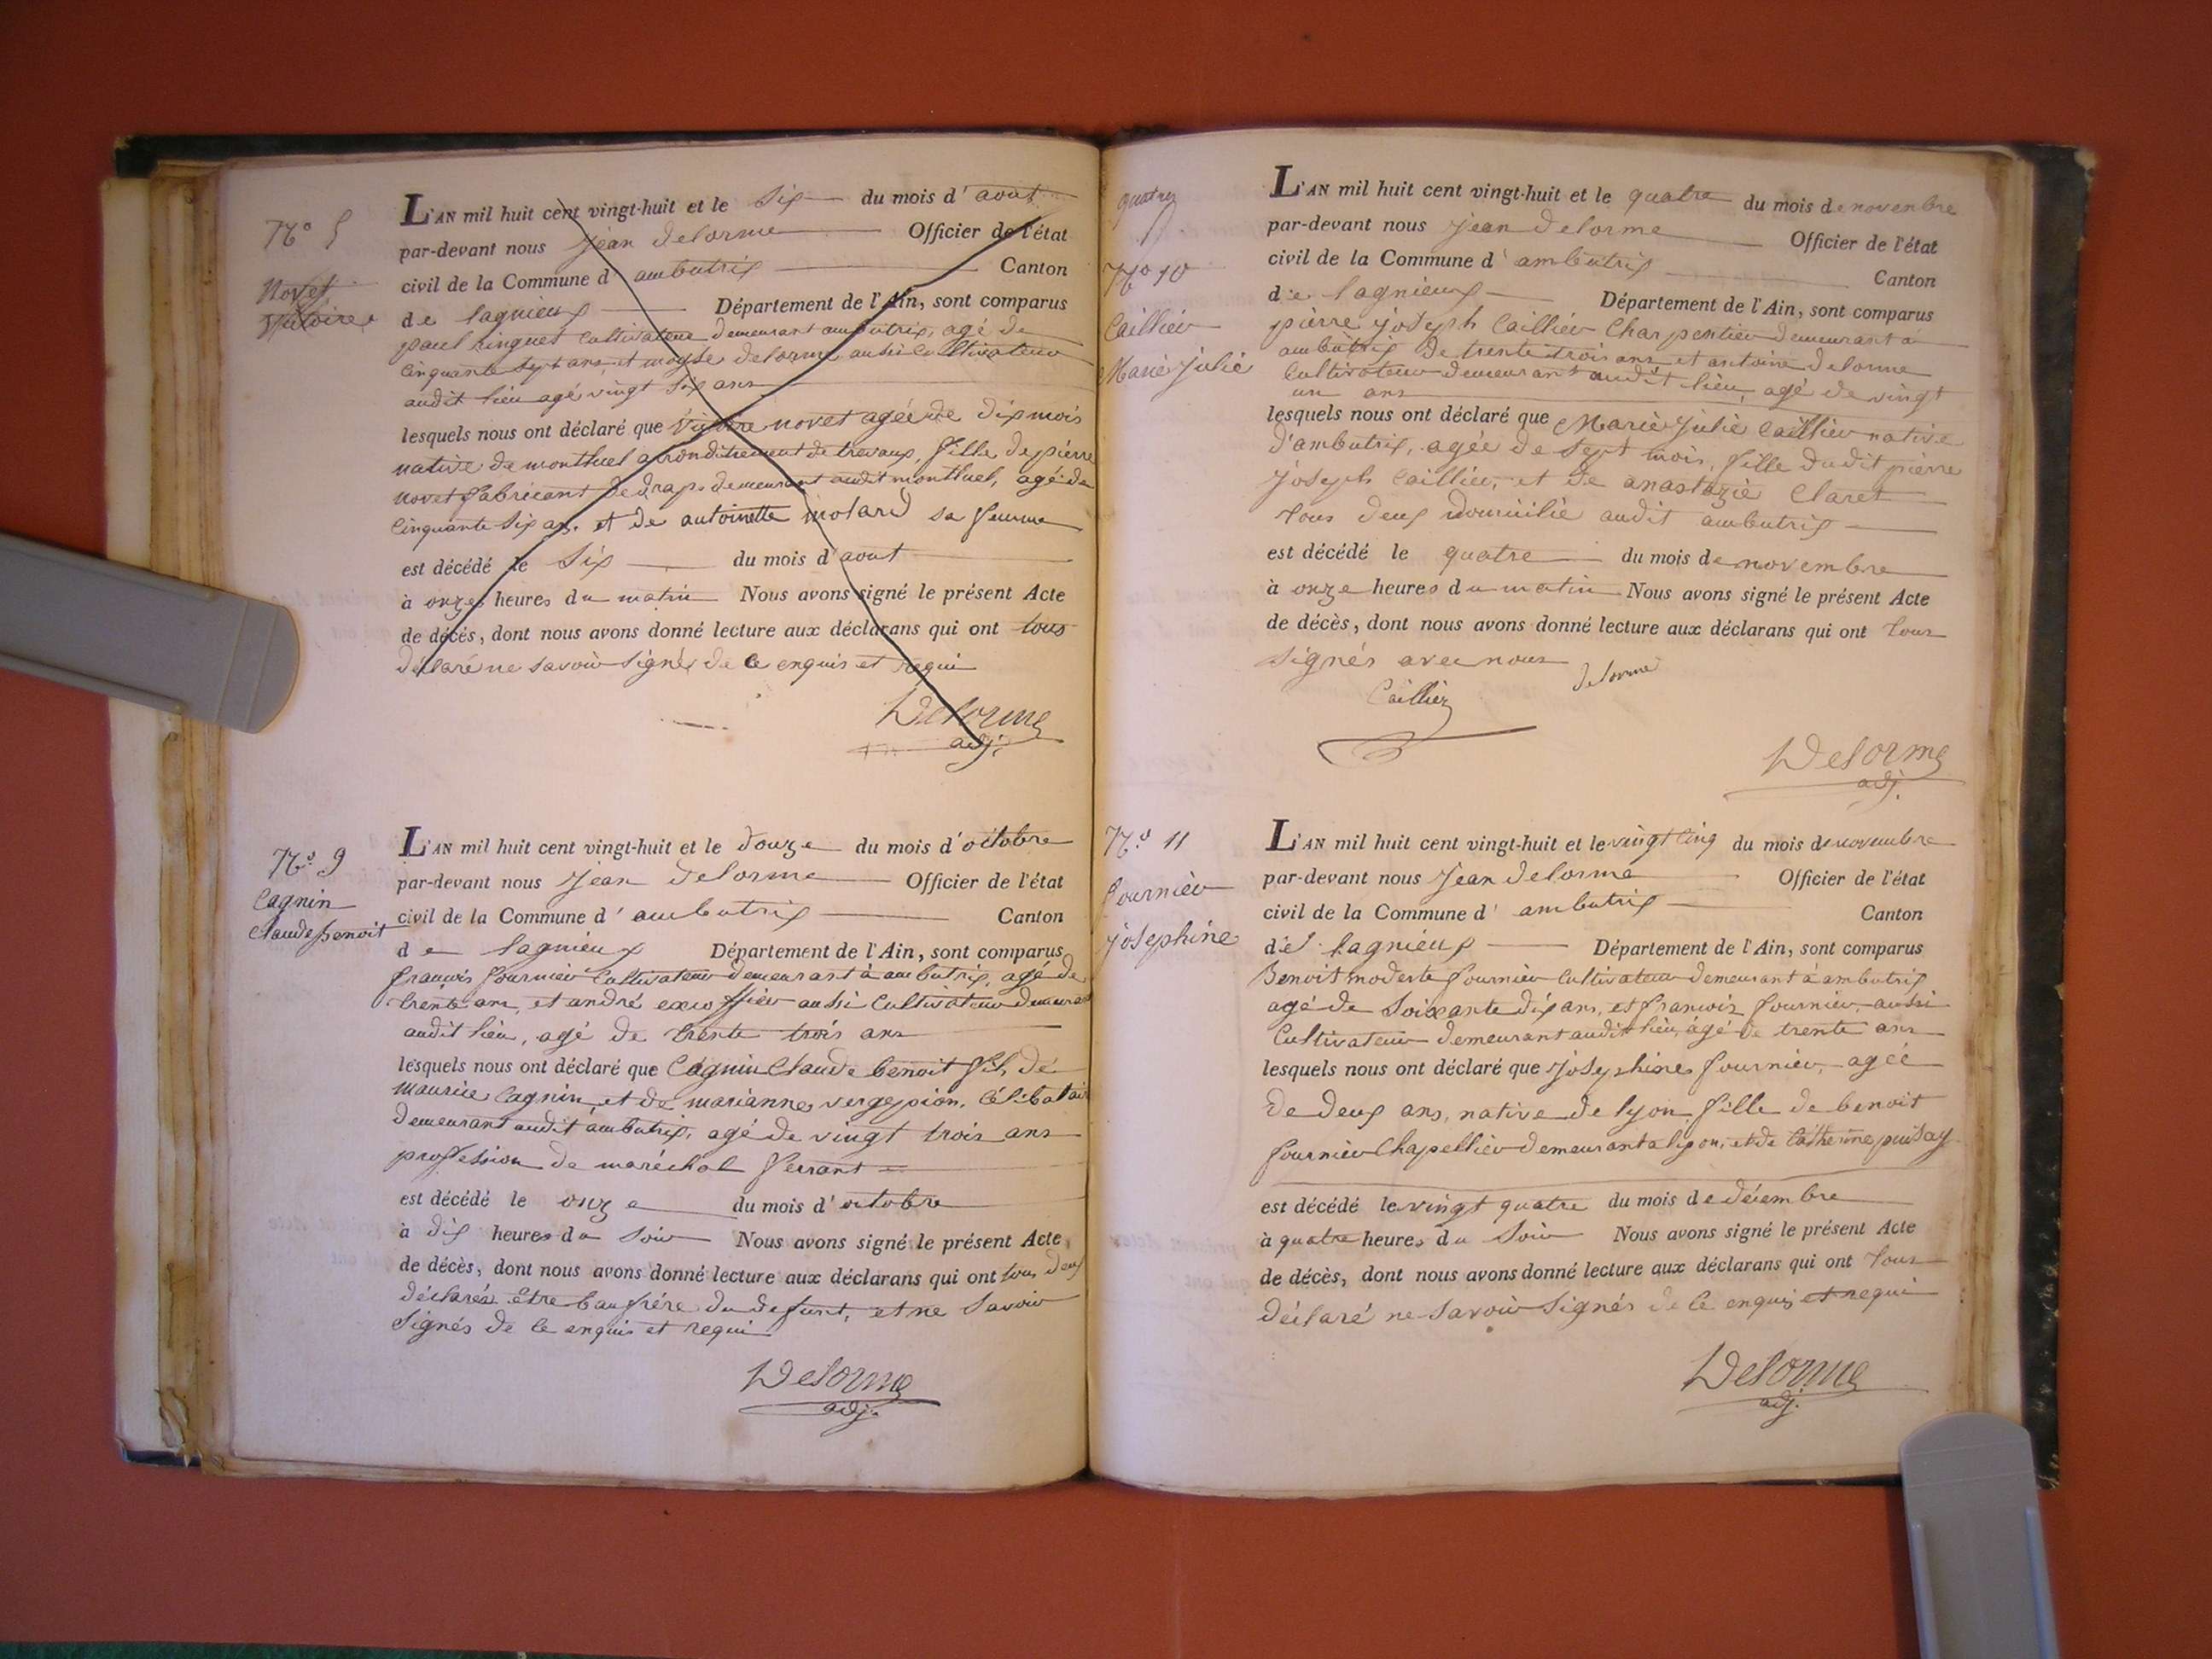 N.o 5
Novet
Victoire
L'AN mil huit cent vingt-huit et le six du mois d'aout
par-devant nous jean delorme Officier de l'état
civil de la Commune d'ambutrix Canton
de lagnieux Département de l'Ain, sont comparus
paul ringuet cultivateur demeurant ambutrix, agé de
cinquante sept ans, et moyse delorme aussi cultivateur
audit lieu agé vingt six ans
lesquels nous ont déclaré que victoire novet agée de dix mois
native de montluel arrondissement de trevoux, fille de pierre
novet fabricant de draps demeurant audit montluel, agé de
cinquante six an. et de antoinette motard sa femme
est décédé le six du mois d'aout
à onze heures du matin Nous avons signé le présent Acte
de décès, dont nous avons donné lecture aux déclarans qui ont tous
déclaré ne savoir signés de ce enquis et requi
Delorme
adj.
N.o 9
Cagnin
claude benoit
L'AN mil huit cent vingt-huit et le douze du mois d'octobre
par-devant nous jean delorme Officier de l'état
civil de la Commune d'ambutrix Canton
de lagnieux Département de l'Ain, sont comparus
francois fournier cultivateur demeurant à ambutrix, agé de
trente ans, et andré aussi cultivateur demeurant
audit lieu, agé de trente trois ans
lesquels nous ont déclaré que Cagnin Claude benoit fils de
maurice Cagnin, et de marianne vergepion, célibatair
demeurant audit ambutrix, agé de vingt trois ans
profession de maréchal ferrant
est décédé le onze du mois d'octobre
à dix heures du soir Nous avons signé le présent Acte
de décès, dont nous avons donné lecture aux déclarans qui ont tous deux
déclarés etre baufrére du defunt, et ne savoir
signés de ce enquis et requi
Delorme
adj.
quatre
N.o 10
Caillier
Marie julie
L'AN mil huit cent vingt-huit et le quatre du mois de novenbre
par-devant nous jean delorme Officier de l'état
civil de la Commune d'ambutrix Canton
de lagnieux Département de l'Ain, sont comparus
pierre joseph Caillier Charpentier demeurant à
ambutrix de trente trois ans et antoine delorme
cultivateur demeurant audit lieu, agé de vingt
un ans
lesquels nous ont déclaré que Marie julie caillier native
d'ambutrix, agée de sept mois, fille dudit pierre
joseph caillier, et de anastazie Claret
tous deux domicilie audit ambutrix
est décédé le quatre du mois de novembre
à onze heures du matin Nous avons signé le présent Acte
de décès, dont nous avons donné lecture aux déclarans qui ont tous
signés avec nous
Caillier delorme
Delorme
adj.
N.o 11
fournier
josephine
L'AN mil huit cent vingt-huit et le vingt cinq du mois de novembre
par-devant nous jean delorme Officier de l'état
civil de la Commune d'ambutrix Canton
de lagnieux Département de l'Ain, sont comparus
Benoit modeste fournier cultivateur demeurant à ambutrix
agé de soixante dix ans, et francois fournier, aussi
cultivateur demeurant audit lieu, agé de trente ans
lesquels nous ont déclaré que josephine fournier, agée
de deux ans, native de lyon, fille de benoit
fournier chapellier demeurant a lyon, et de Catherine puisay
est décédé le vingt quatre du mois de décembre
à quatre heures du soir Nous avons signé le présent Acte
de décès, dont nous avons donné lecture aux déclarans qui ont tous
déclaré ne savoir signés de ce enquis et requi
Delorme
adj.